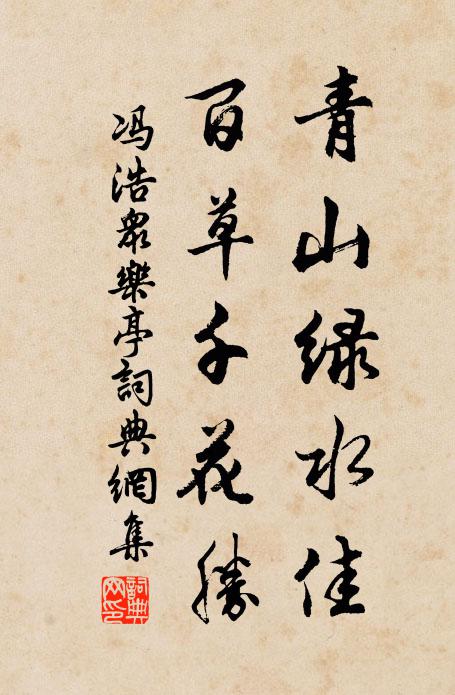 青山绿水佳
百草千花勝
冯浩眾樂亭詞典網集
詞典